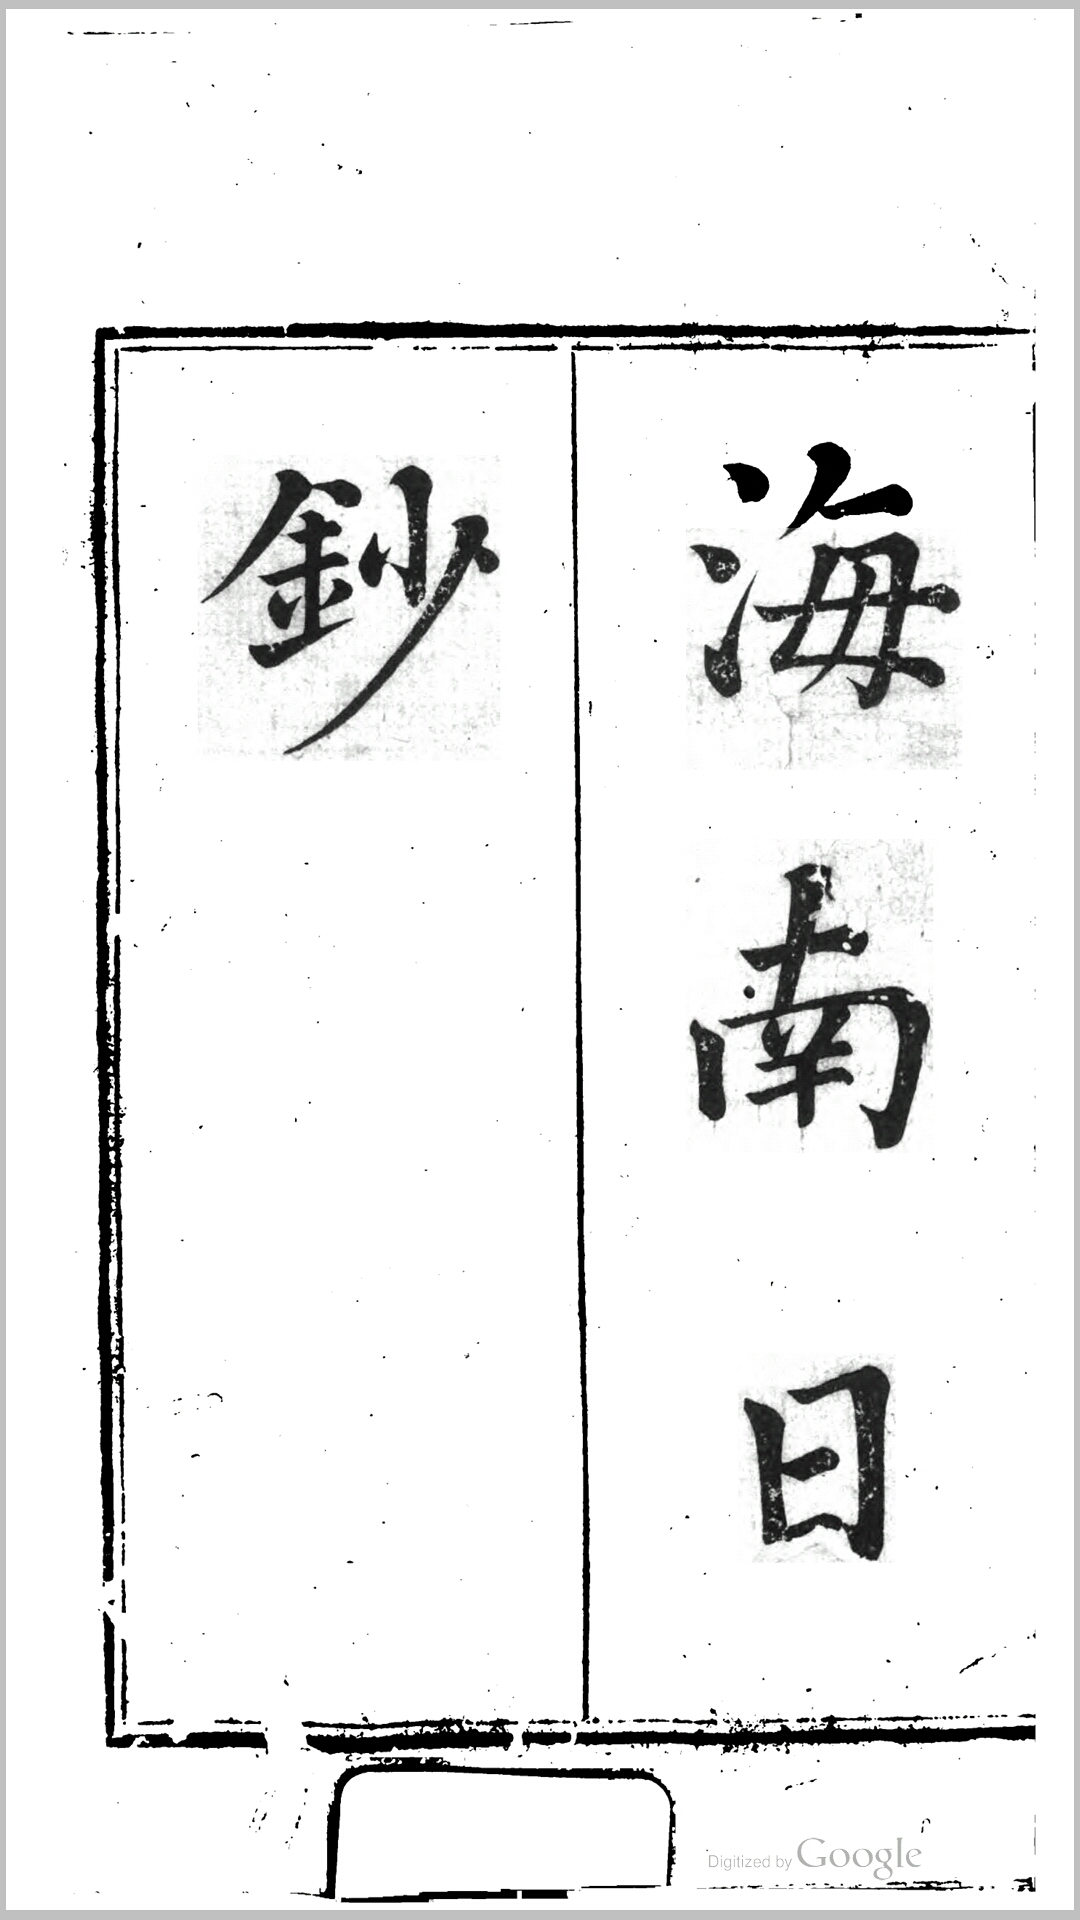 海南日
鈔
Digitized by Google